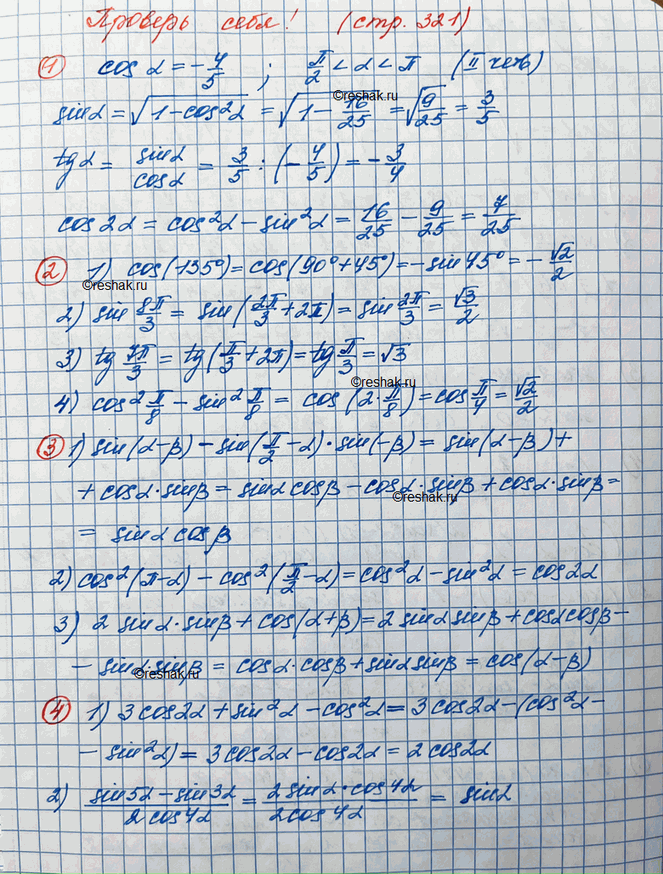 Проверь себя! (стр. 321)
① cos α = -4/5 ; π/2 < α < π (II четв)
©reshak.ru
sin α = √(1-cos²α) = √(1 - 16/25) = √(9/25) = 3/5
tg α = sin α/cos α = 3/5 : (-4/5) = -3/4
cos 2α = cos²α - sin²α = 16/25 - 9/25 = 7/25
② 1) cos(-135°) = cos(90° + 45°) = -sin 45° = -√2/2
©reshak.ru
2) sin 8π/3 = sin(2π/3 + 2π) = sin 2π/3 = √3/2
3) tg 7π/3 = tg(π/3 + 2π) = tg π/3 = √3
©reshak.ru
4) cos² π/8 - sin² π/8 = cos(2·π/8) = cos π/4 = √2/2
③ 1) sin(α-β) - sin(π/2 - α)·sin(-β) = sin(α-β) +
+ cos α·sin β = sin α cos β - cos α·sin β + cos α·sin β =
©reshak.ru
= sin α cos β
2) cos²(π-α) - cos²(π/2 - α) = cos²α - sin²α = cos 2α
3) 2 sin α·sin β + cos(α+β) = 2 sin α sin β + cos α cos β -
- sin α·sin β = cos α·cos β + sin α sin β = cos(α-β)
©reshak.ru
④ 1) 3 cos 2α + sin²α - cos²α = 3 cos 2α - (cos²α -
- sin²α) = 3 cos 2α - cos 2α = 2 cos 2α
2) (sin 5α - sin 3α)/(2 cos 4α) = (2 sin α·cos 4α)/(2 cos 4α) = sin α